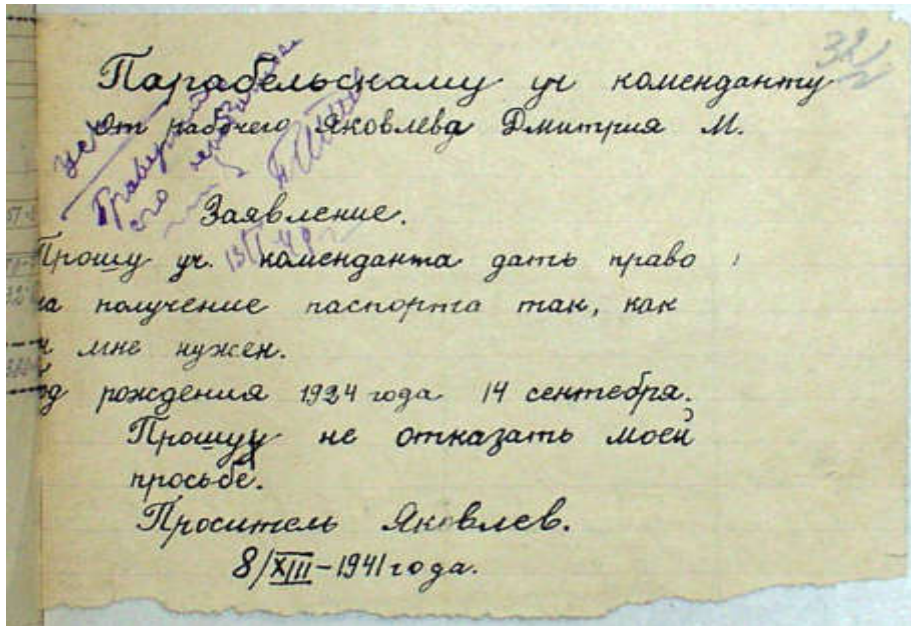 32
Парабельскаму уч коменданту
От рабочего Яковлева Дмитрия М.
Заявление.
Прошу уч. коменданта дать право
на получение паспорта так, как
н мне нужен.
од рождения 1924 года 14 сентебря.
Прошуу не отказать моей
просьбе.
Проситель Яковлев.
8/XIII-1941 года.